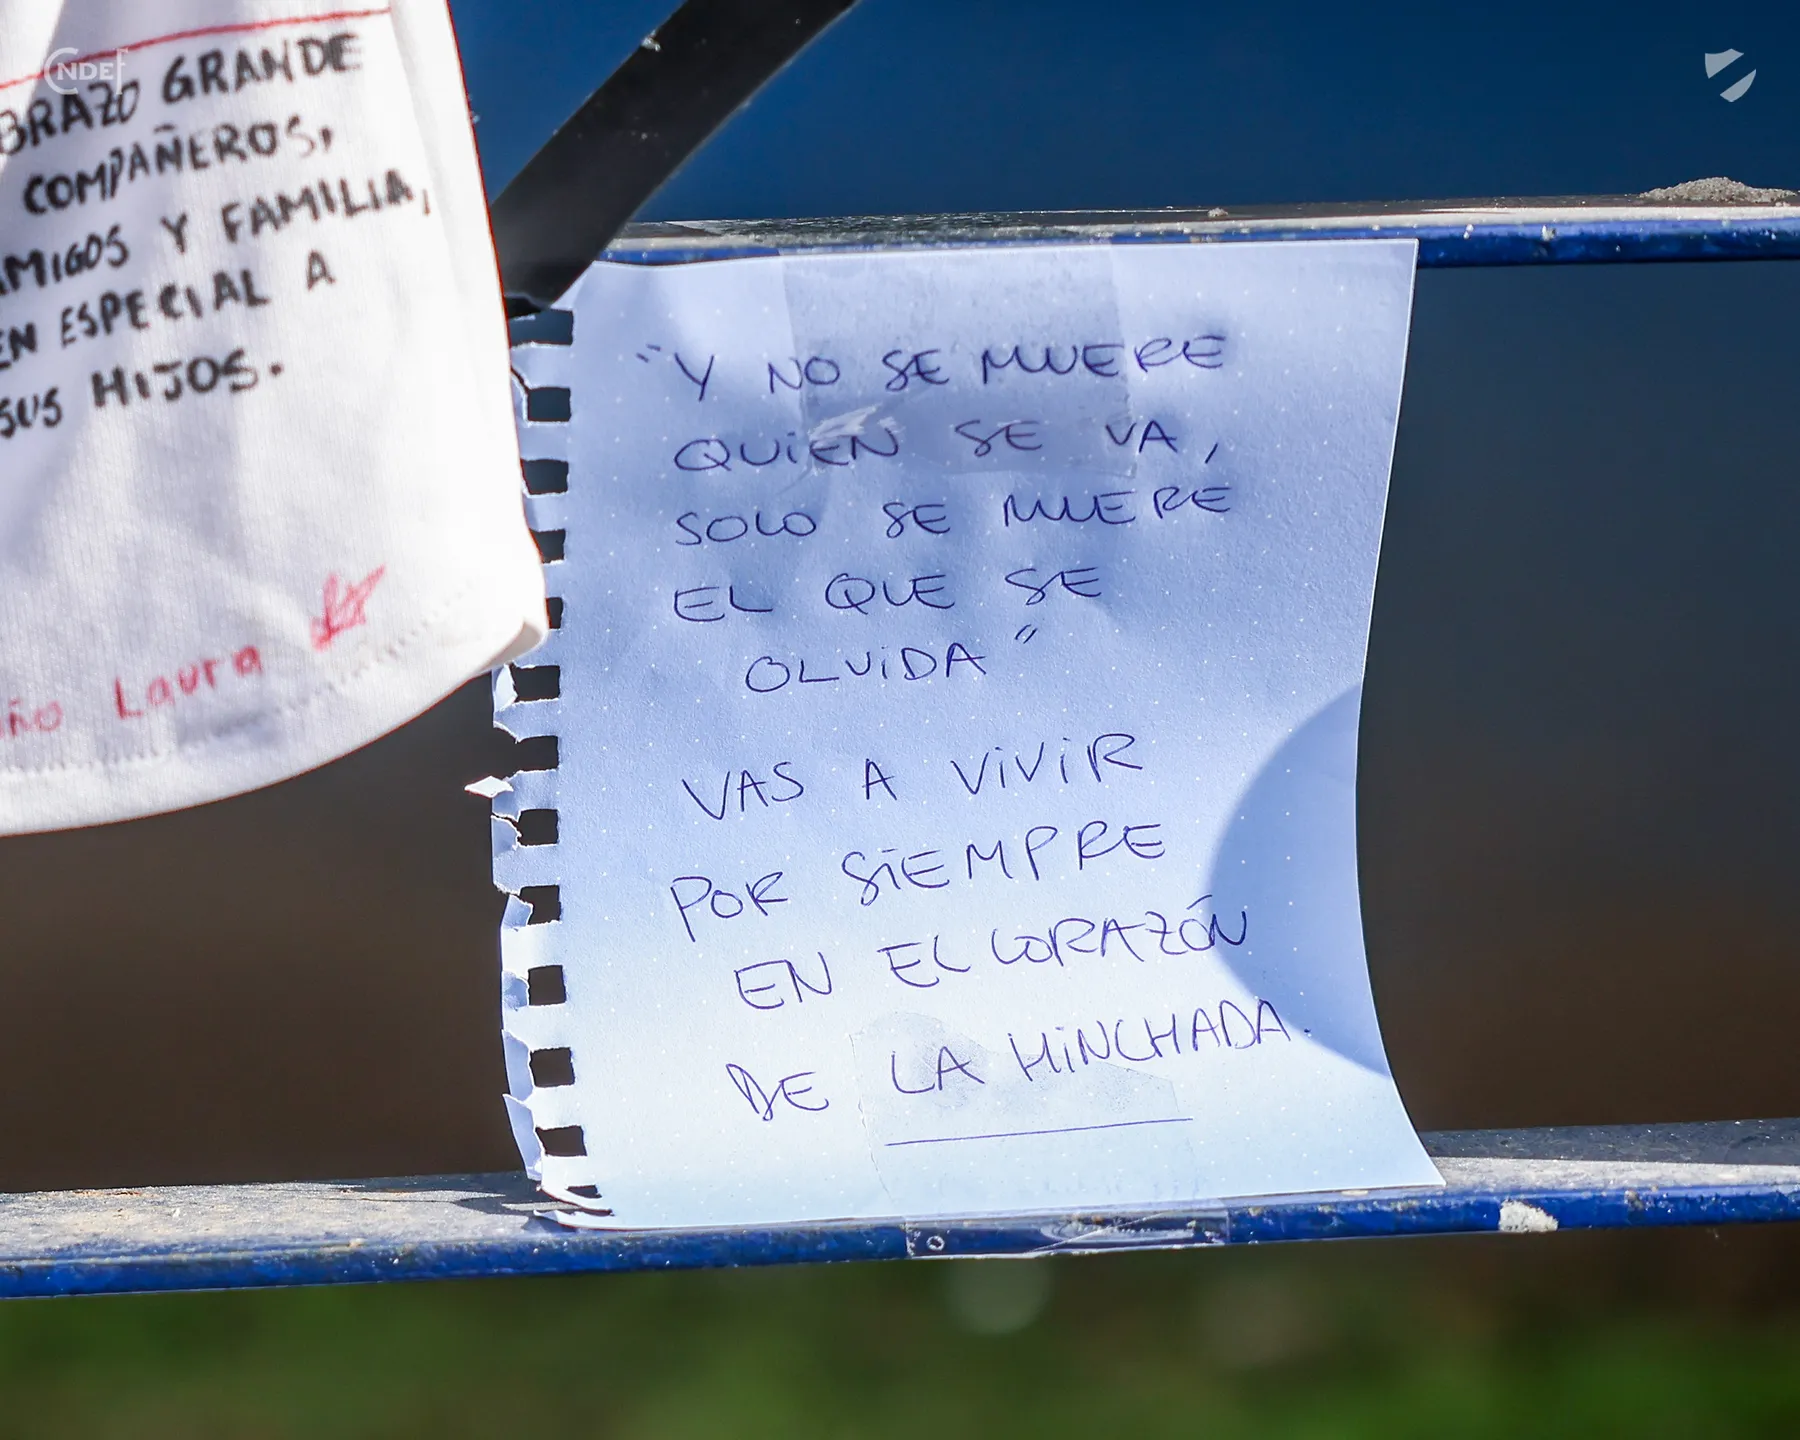 NDEF
GRANDE
COMPAÑEROS,
Y FAMILIA,
EN ESPECIAL A
SUS HIJOS.
Laura
"Y NO SE MUERE
QUIEN SE VA,
SOLO SE MUERE
EL QUE SE
OLVIDA"
VAS A VIVIR
POR SIEMPRE
EN EL CORAZÓN
DE LA HINCHADA.